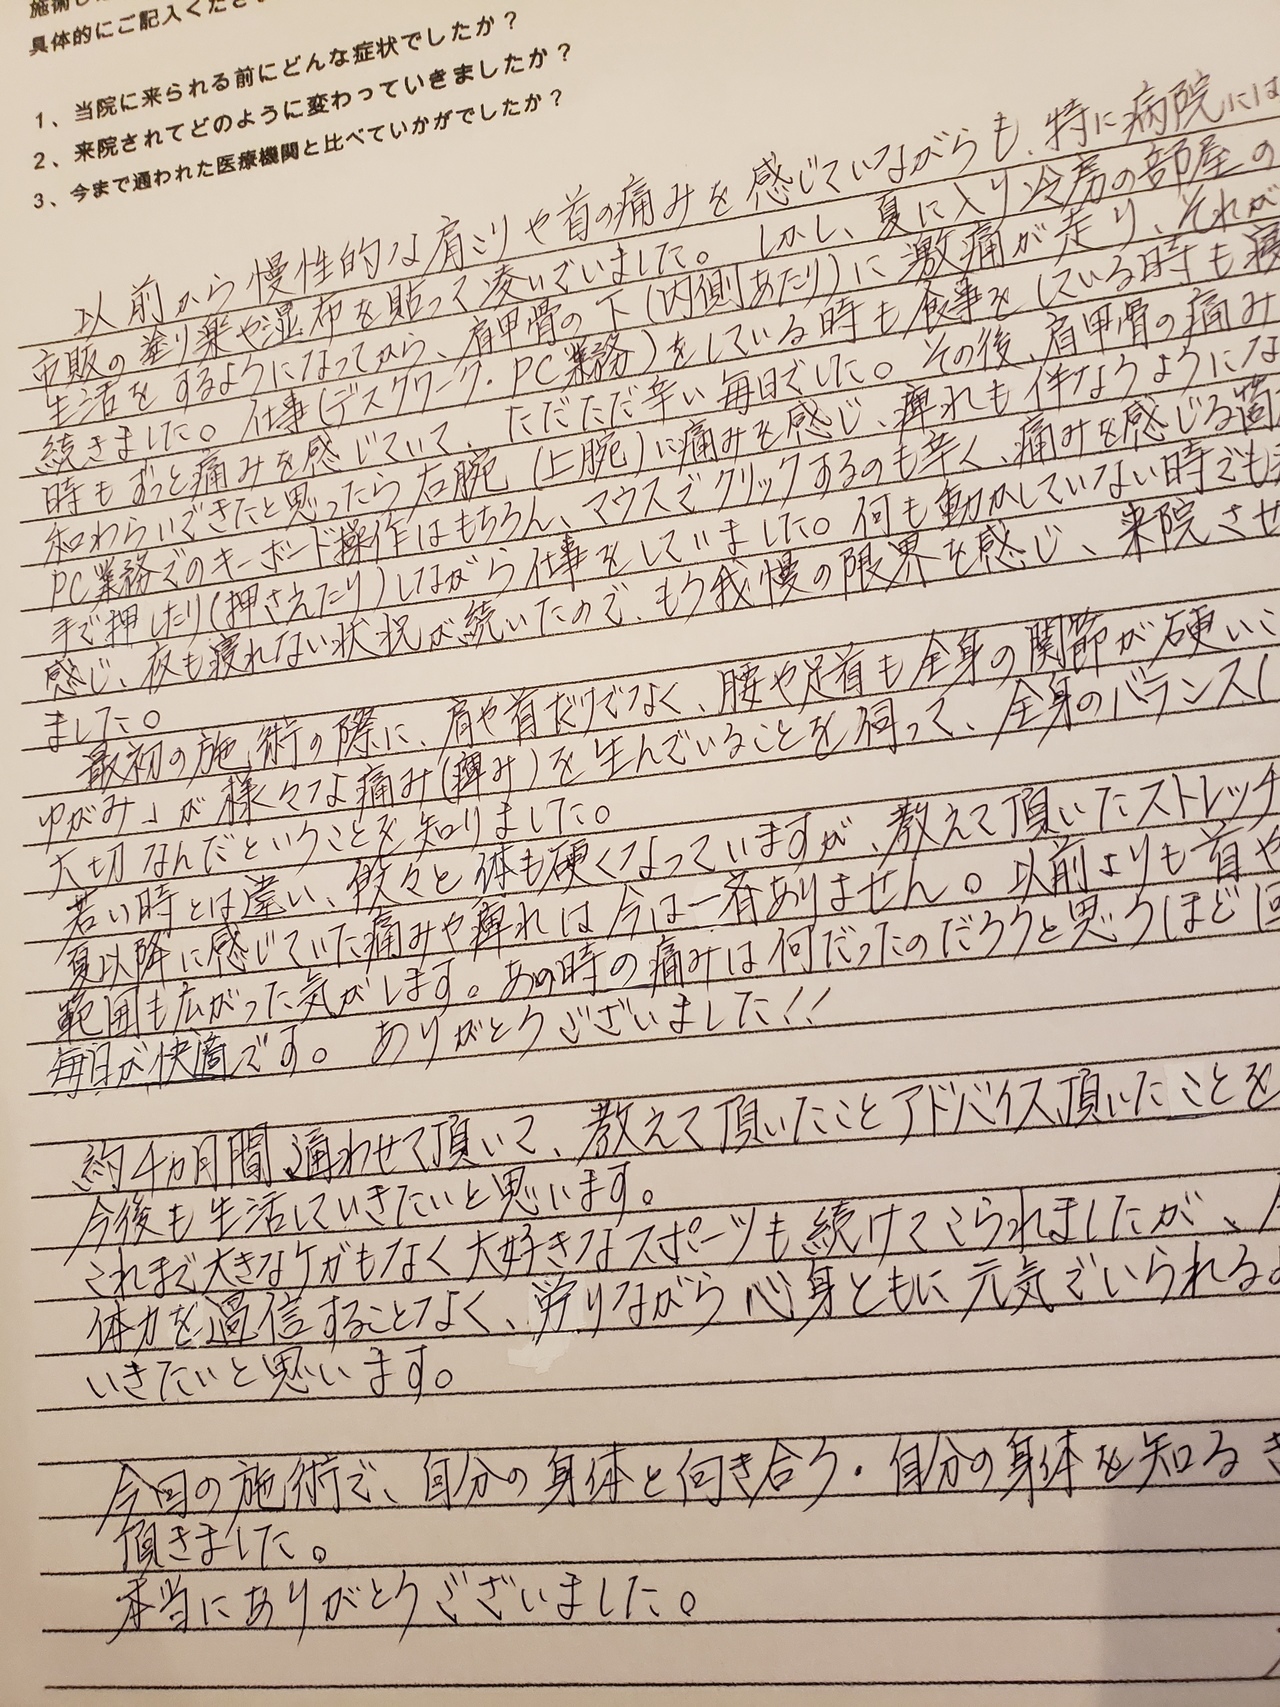 具体的にご記入くださ
1、当院に来られる前にどんな症状でしたか？
2、来院されてどのように変わっていきましたか？
3、今まで通われた医療機関と比べていかがでしたか？
以前から慢性的な肩こりや首の痛みを感じていながらも、特に病院には
市販の塗り薬や湿布を貼って凌いでいました。しかし、夏に入り冷房の部屋の
生活をするようになってから、肩甲骨の下(内側あたり)に激痛が走り、それが
続きました。仕事(デスクワーク・PC業務)をしている時も食事をしている時も寝
時もずっと痛みを感じていて、ただただ辛い毎日でした。その後、肩甲骨の痛み
和わらいできたと思ったら右腕(上腕)に痛みを感じ、痺れも伴なうようにな
PC業務でのキーボード操作はもちろん、マウスでクリックするのも辛く、痛みを感じる箇
手で押したり(押さえたり)しながら仕事をしていました。何も動かしていない時でも
感じ、夜も寝れない状況が続いたので、もう我慢の限界を感じ、来院させ
ました。
最初の施術の際に、肩や首だけでなく、腰や足首も全身の関節が硬いこ
ゆがみ」が様々な痛み(痺み)を生んでいることを伺って、全身のバランス(
大切なんだということを知りました。
若い時とは違い、段々と体も硬くなっていますが、教えて頂いたストレッチ
夏以降に感じていた痛みや痺れは今は一斉ありません。以前よりも首や
範囲も広がった気がします。あの時の痛みは何だったのだろうと思うほど回
毎日が快適です。ありがとうございました!!
約4ヵ月間通わせて頂いて、教えて頂いたことアドバイス頂いたことを
今後も生活していきたいと思います。
これまで大きなケガもなく大好きなスポーツも続けてこられましたが、
体力を過信することなく、労りながら心身ともに元気でいられる
いきたいと思います。
今回の施術で、自分の身体と向き合う・自分の身体を知るき
頂きました。
本当にありがとうございました。